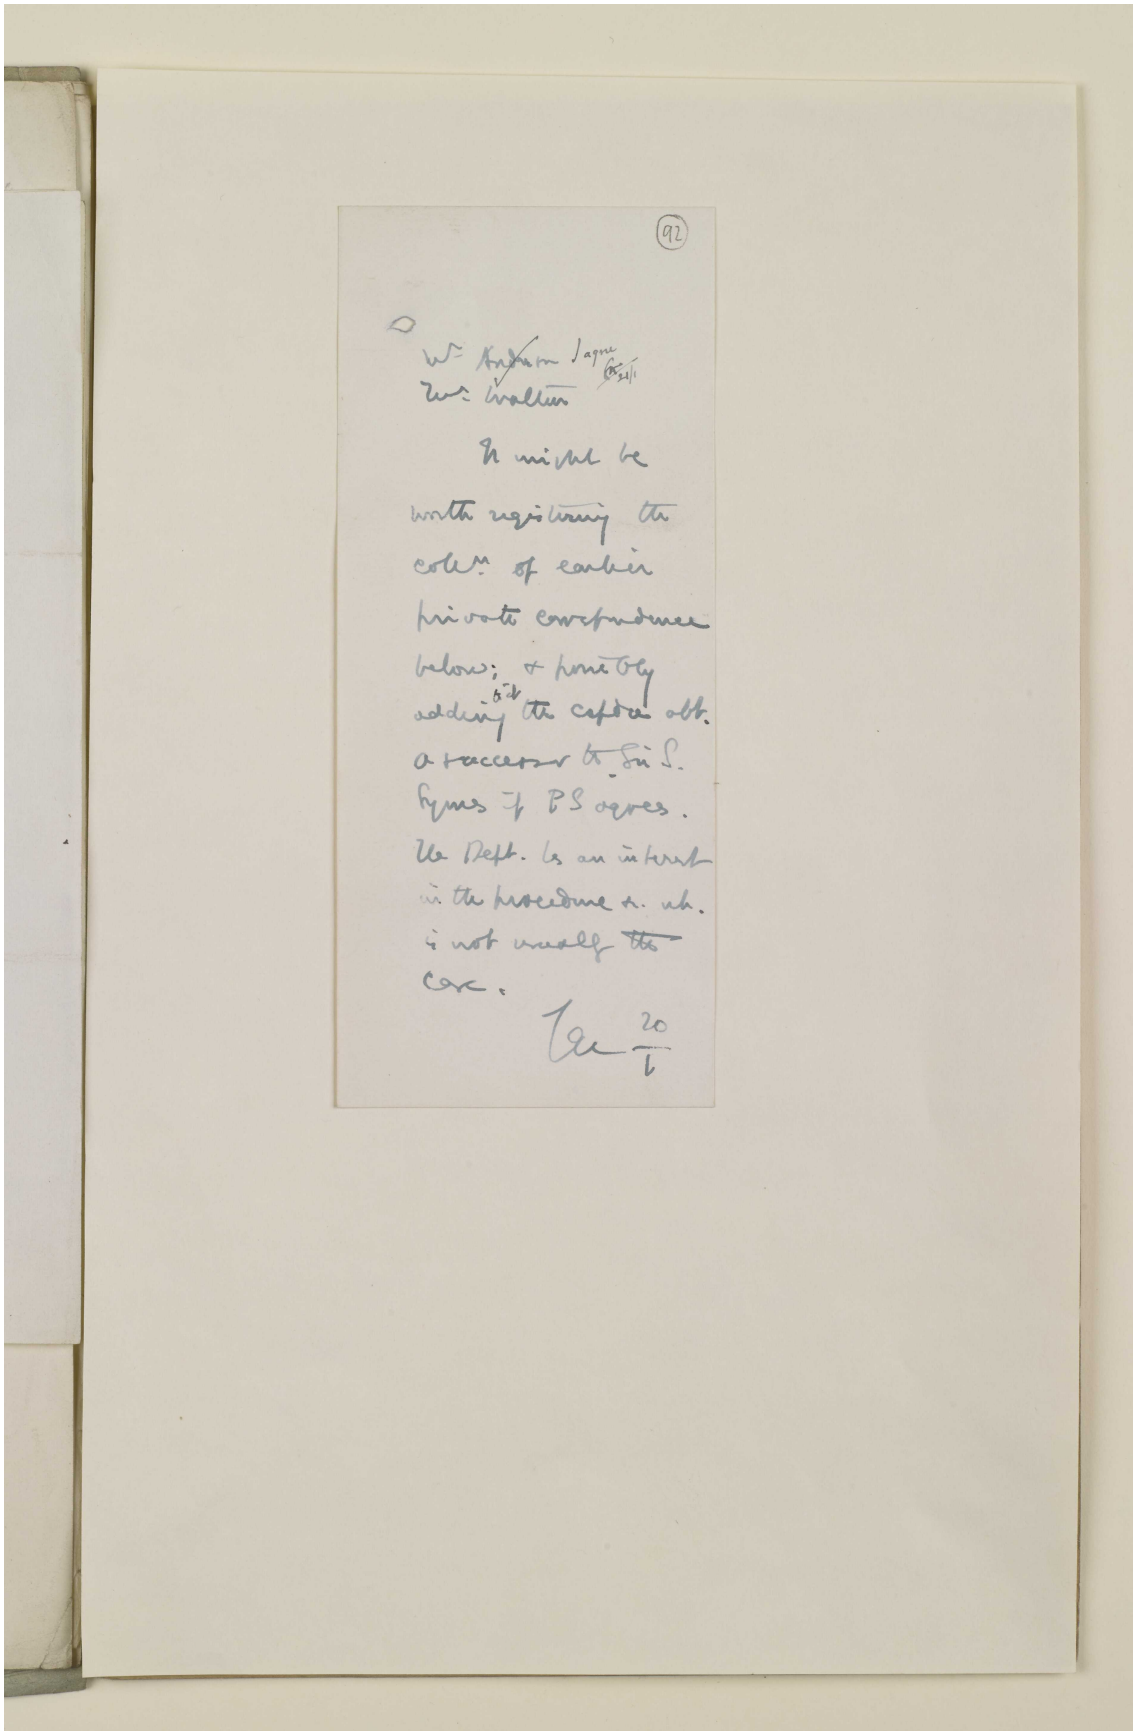 92
Mr. Anderson I agree
21/1
Mr. Walton
It might be
worth registering the
colln. of earlier
private correspondence
below; & possibly
adding to it
the copies abt.
a successor to Sir S.
Symes if PS agrees.
The Dept. has an interest
in the procedure &c. wh.
is not usually the
case.
20
1